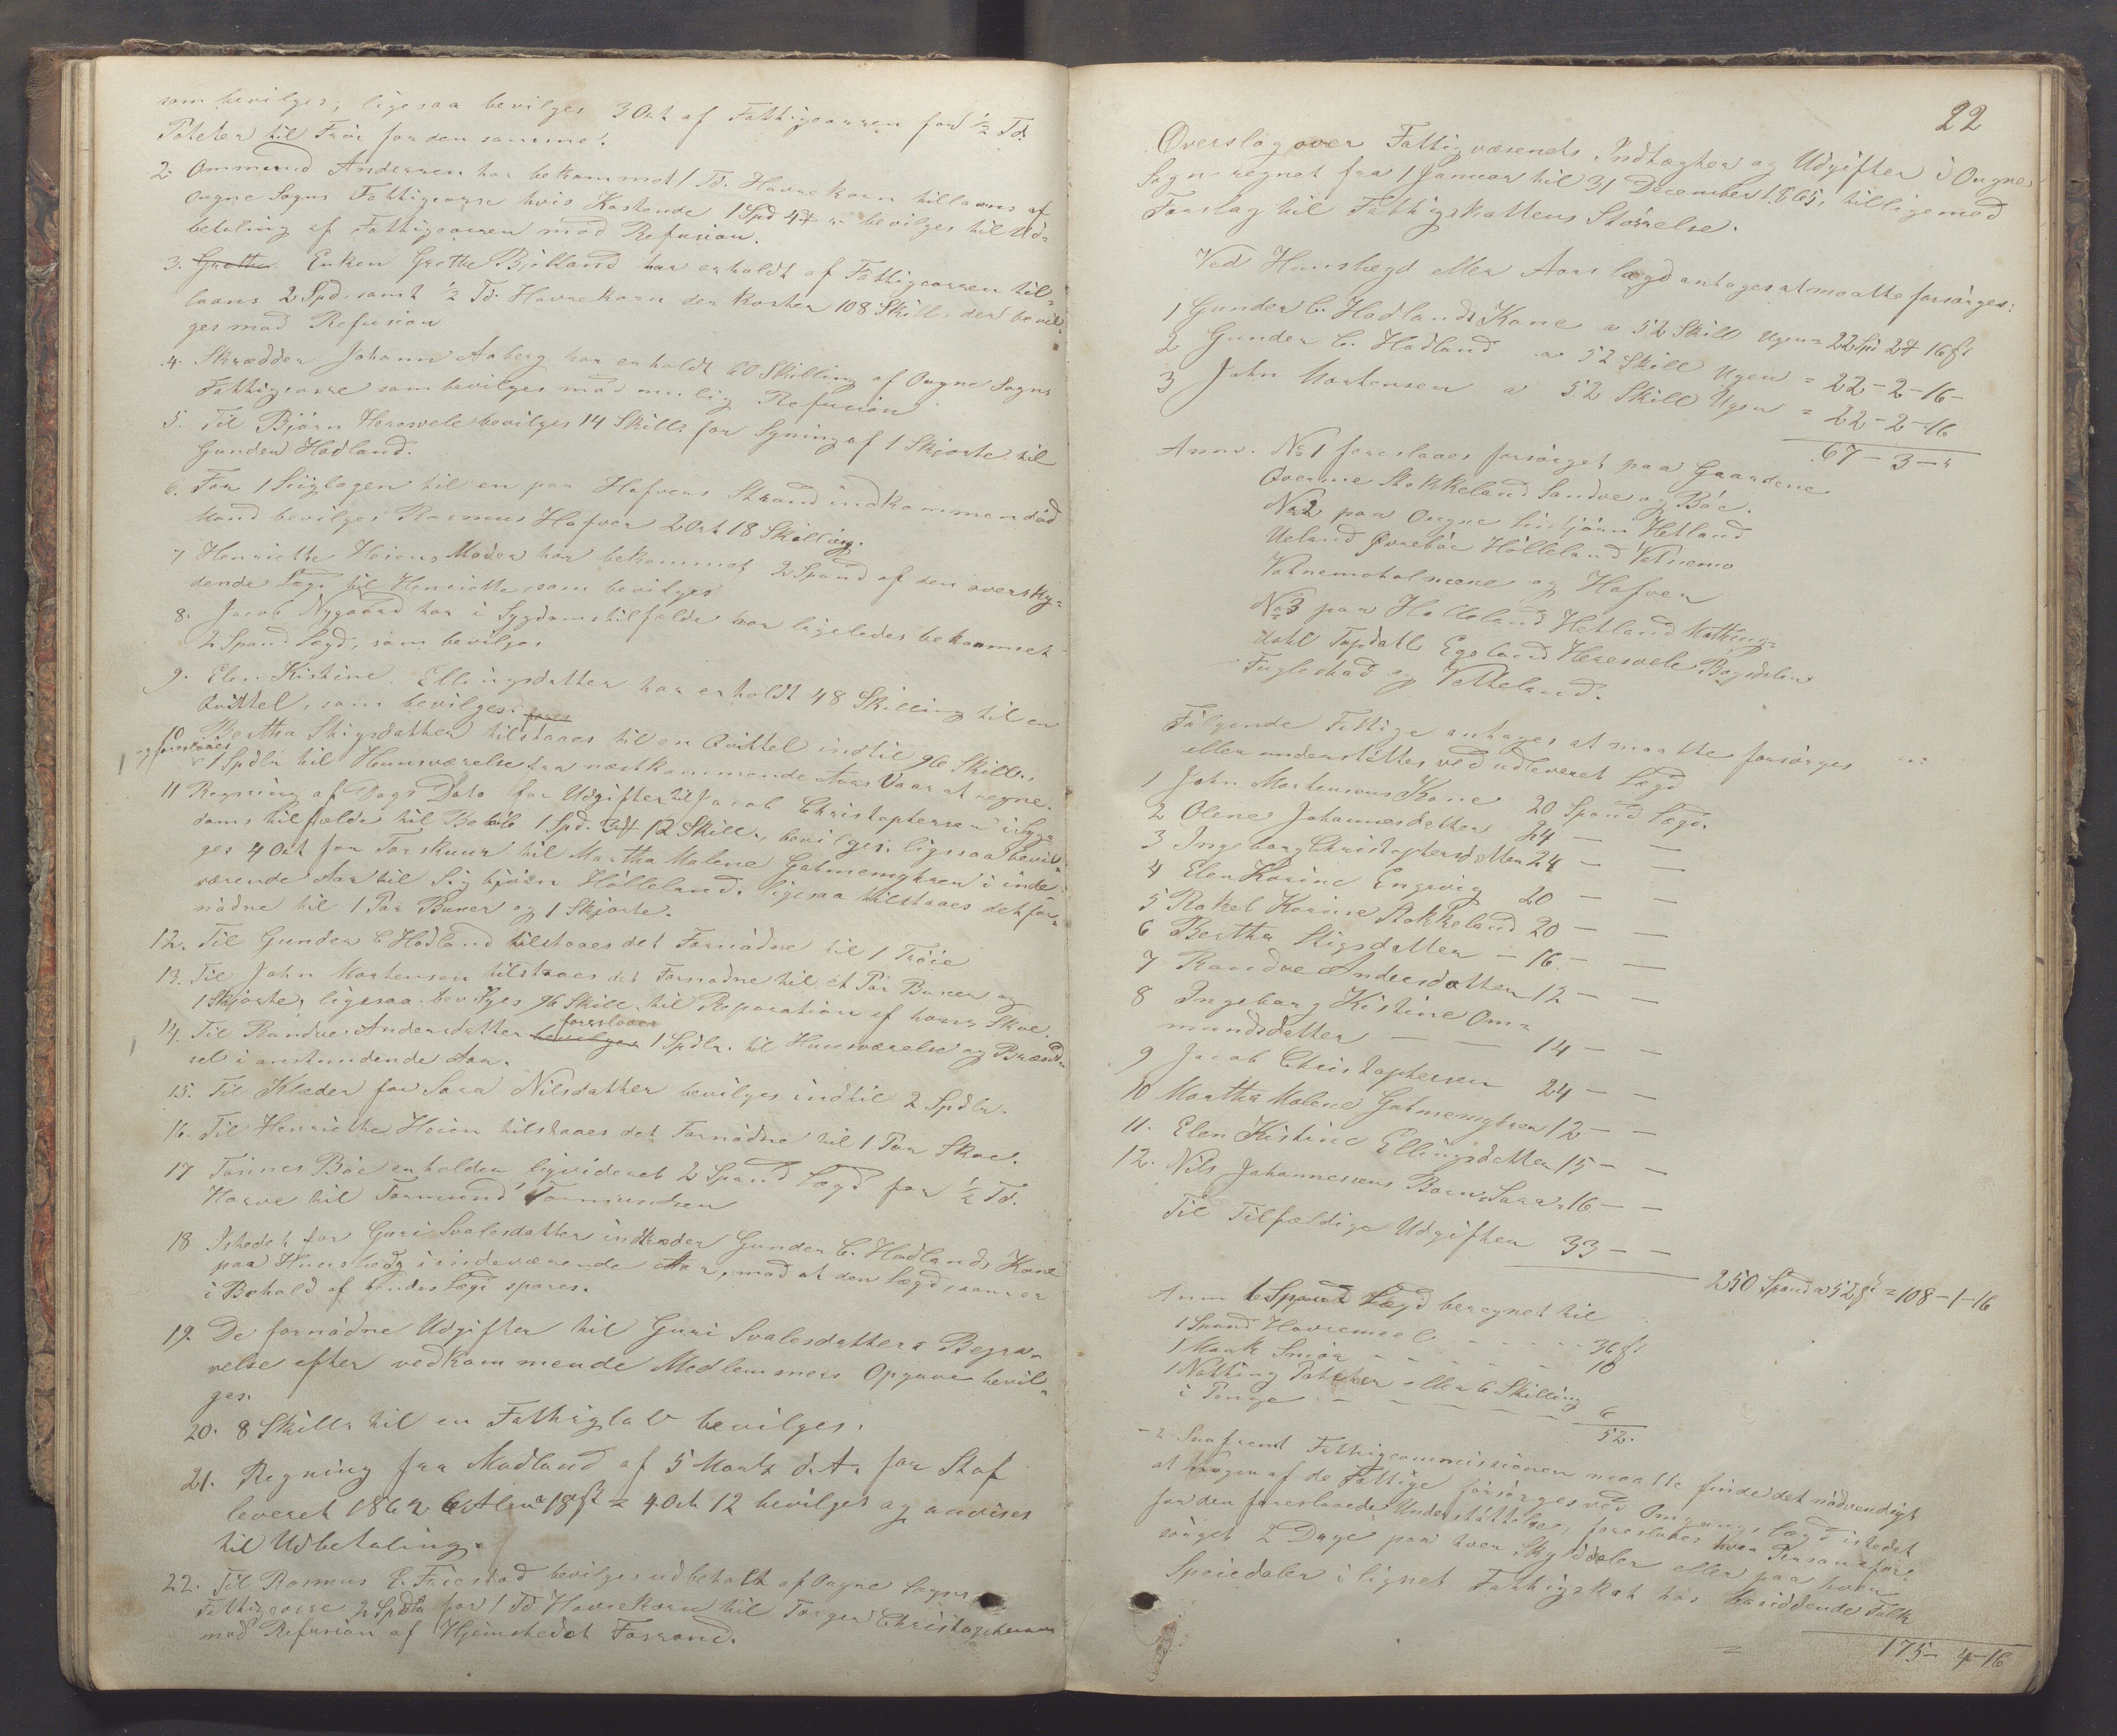 som bevilges, ligesaa bevilges 3 Ort af Fattigcassen for ½ Td.
Poteter til Frøe for den samme.
2. Ommund Anderssen har bekommet 1 Td. Havrekorn tillaans af
Ougne Sogns Fattigcasse hvis Kostende 1 Spd 4 bevilges til Ud=
betaling af Fattigcassen mod Refusion.
3. Grethe Enken Grethe Bjelland har erholdt af Fattigcassen til=
laans 2 Spd. samt ½ Td. Havrekorn der koster 108 Skill. der bevil=
ges mod Refusion
4. Skrædder Johann Aaberg har erholdt 60 Skilling af Ougne Sogns
Fattigcasse som bevilges mod mulig Refusion
5. Til Bjørn Heresvele bevilges 14 Skill. for Syning af 1 Skjorte til
Gunder Hodland.
6. For 1 Liiglagen til en paa Hafvens Strand indkommen død
Mand bevilges Rasmus Hafven 2 Ort 18 Skilling.
7 Henriette Heiens Moder har bekommet 2 Spand af den oversky=
dende Lægd til Henriette, som bevilges
8. Jacob Nygaard har i Sygdomstilfælde har ligeledes bekommet
2 Spand Lægd, som bevilges
9. Elen Kistine Ellingsdatter har erholdt 48 Skilling til en
Qvittel, som bevilges.
10 Bertha Stigsdatter tilstaaes til en Qvittel indtil 96 Skill.,
og foreslaaes 1 Spdlr til Huusværelse fra næstkommende Aars Vaar at regne.
11 Regning af Dags Dato for Udgifter til Jacob Christophersen i Syg=
doms tilfælde til Beløb 1 Spd. 3 12 Skill., bevilges. ligesaa bevil=
ges 4 Ort for Torskuur til Martha Malene Gatmemyhren i inde=
værende Aar til Sigbjørn Hølleland. ligesaa tilstaaes det for=
nødne til 1 Par Buxer og 1 Skjorte.
12. Til Gunder C Hodland tilstaaes det Fornødne til 1 Trøie
13. Til John Mortensen tilstaaes det Fornødne til et Par Buxer og
1 Skjorte, ligesaa bevilges 96 Skill. til Reparation af hans Skoe.
14. Til Randve Andersdatter bevilges foreslaaes 1 Spdlr. til Huusværelse og Brænd=
sel i anstundende Aar.
15. Til Klæder for Sara Nilsdatter bevilges indtil 2 Spdlr.
16. Til Henriette Heien tilstaaes det Fornødne til 1 Par Skoe.
17 Tønnes Bøe erholder ligvideret 2 Spand Lægd for ½ Td.
Havre til Tormund Tormundsen
18 Istedet for Guri Svalesdatter indtræder Gunder C. Hodlands Kone
paa Huuslægd i indeværende Aar, mod at den Lægd, som er
i Behold af hendes Lægd spares.
19 De fornødne Udgifter til Guri Svalesdatters Begra=
velse efter vedkommende Medlemmers Opgave bevil=
ges.
20. 8 Skill. til en Fattiglov bevilges.
21. Regning fra Madland af 5 Marts d. A. for Stof
leveret 1862 6 Alen 18 ß = 4 Ort 12 bevilges og anvises
til Udbetaling.
22. Til Rasmus E. Friestad bevilges udbetalt af Ougne Sogns
Fattigcasse 2 Spdlr for 1 Td Havrekorn til Torger Christophersen
mod Refusion af Hjemstedet Forsand.
22
Overslag over Fattigvæsenets Indtægter og Udgifter i Ougne
Sogn regnet fra 1 Januar til 31 December 1865, tilligemed
Forslag til Fattigskattens Størrelse.
Ved Huuslægd eller Aars lægd antages at maatte forsørges:
1 Gunder C. Hodlands Kone a 52 Skill Ugen = 22 Spd 2 16 ß
2 Gunder C. Hodland a 52 Skill Ugen = 22 - 2 - 16 -
3 John Mortensen a 52 Skill Ugen = 22 - 2 - 16
67 - 3 - "
Anm. No 1 foreslaaes forsørget paa Gaardene
Øverme Stokkeland Sandve og Bøe.
No 2 paa Ougne Hetland
Ueland Øvrebøe Hølleland Vetnemo
Vatnemoholmene og Hafven
No 3 paa Holleland Hetland
dahl Topdahl Egeland Heresvele Bøgsdalen
Fuglestad og Vetteland.
Følgende Fattige antages at maatte forsørges
eller understøttes ved udleveret Lægd
1 John Mortensens Kone 20 Spand Lægd.
2 Olene Johannesdatter 24 — —
3 Ingeborg Christophersdatter 24 — —
4 Elen Karine Engevig 20 — —
5 Rakel Karine Stokkeland 20 — —
6 Bertha Stigsdatter — 16 — —
7 Randve Andersdatter 12 — —
8 Ingeborg Kistine Om=
mundsdatter — — 14 — —
9 Jacob Christophersen 24 — —
10 Martha Malene Gatmemyhren 12 — —
11. Elen Kistine Ellingsdatter 15 — —
12. Nils Johannessens Barn Sara 16 — —
Til Tilfældige Udgifter 33 — —
250 Spand a 52 ß = 108 - 1 - 16
Anm 1 Spand Lægd beregnet til
1 Spand Havremeel - - - - 36 ß
1 Mark Smør - - - - - - 10
1 Notting Poteter eller 6 Skilling
i Penge - - - - - - 6
52.
Saafremt Fattigcommissionen maatte finde det nødvendigt
at nogen af de Fattige forsørges ved Omgangs lægd istedet
for den foreslaaede Understøttelse, foreslaaes hver Person afsør=
sørget 2 Dage paa hver Skylddaler eller paa hver
Speciedaler i lignet Fattigskat hos besiddende Folk
175 - 4 - 16